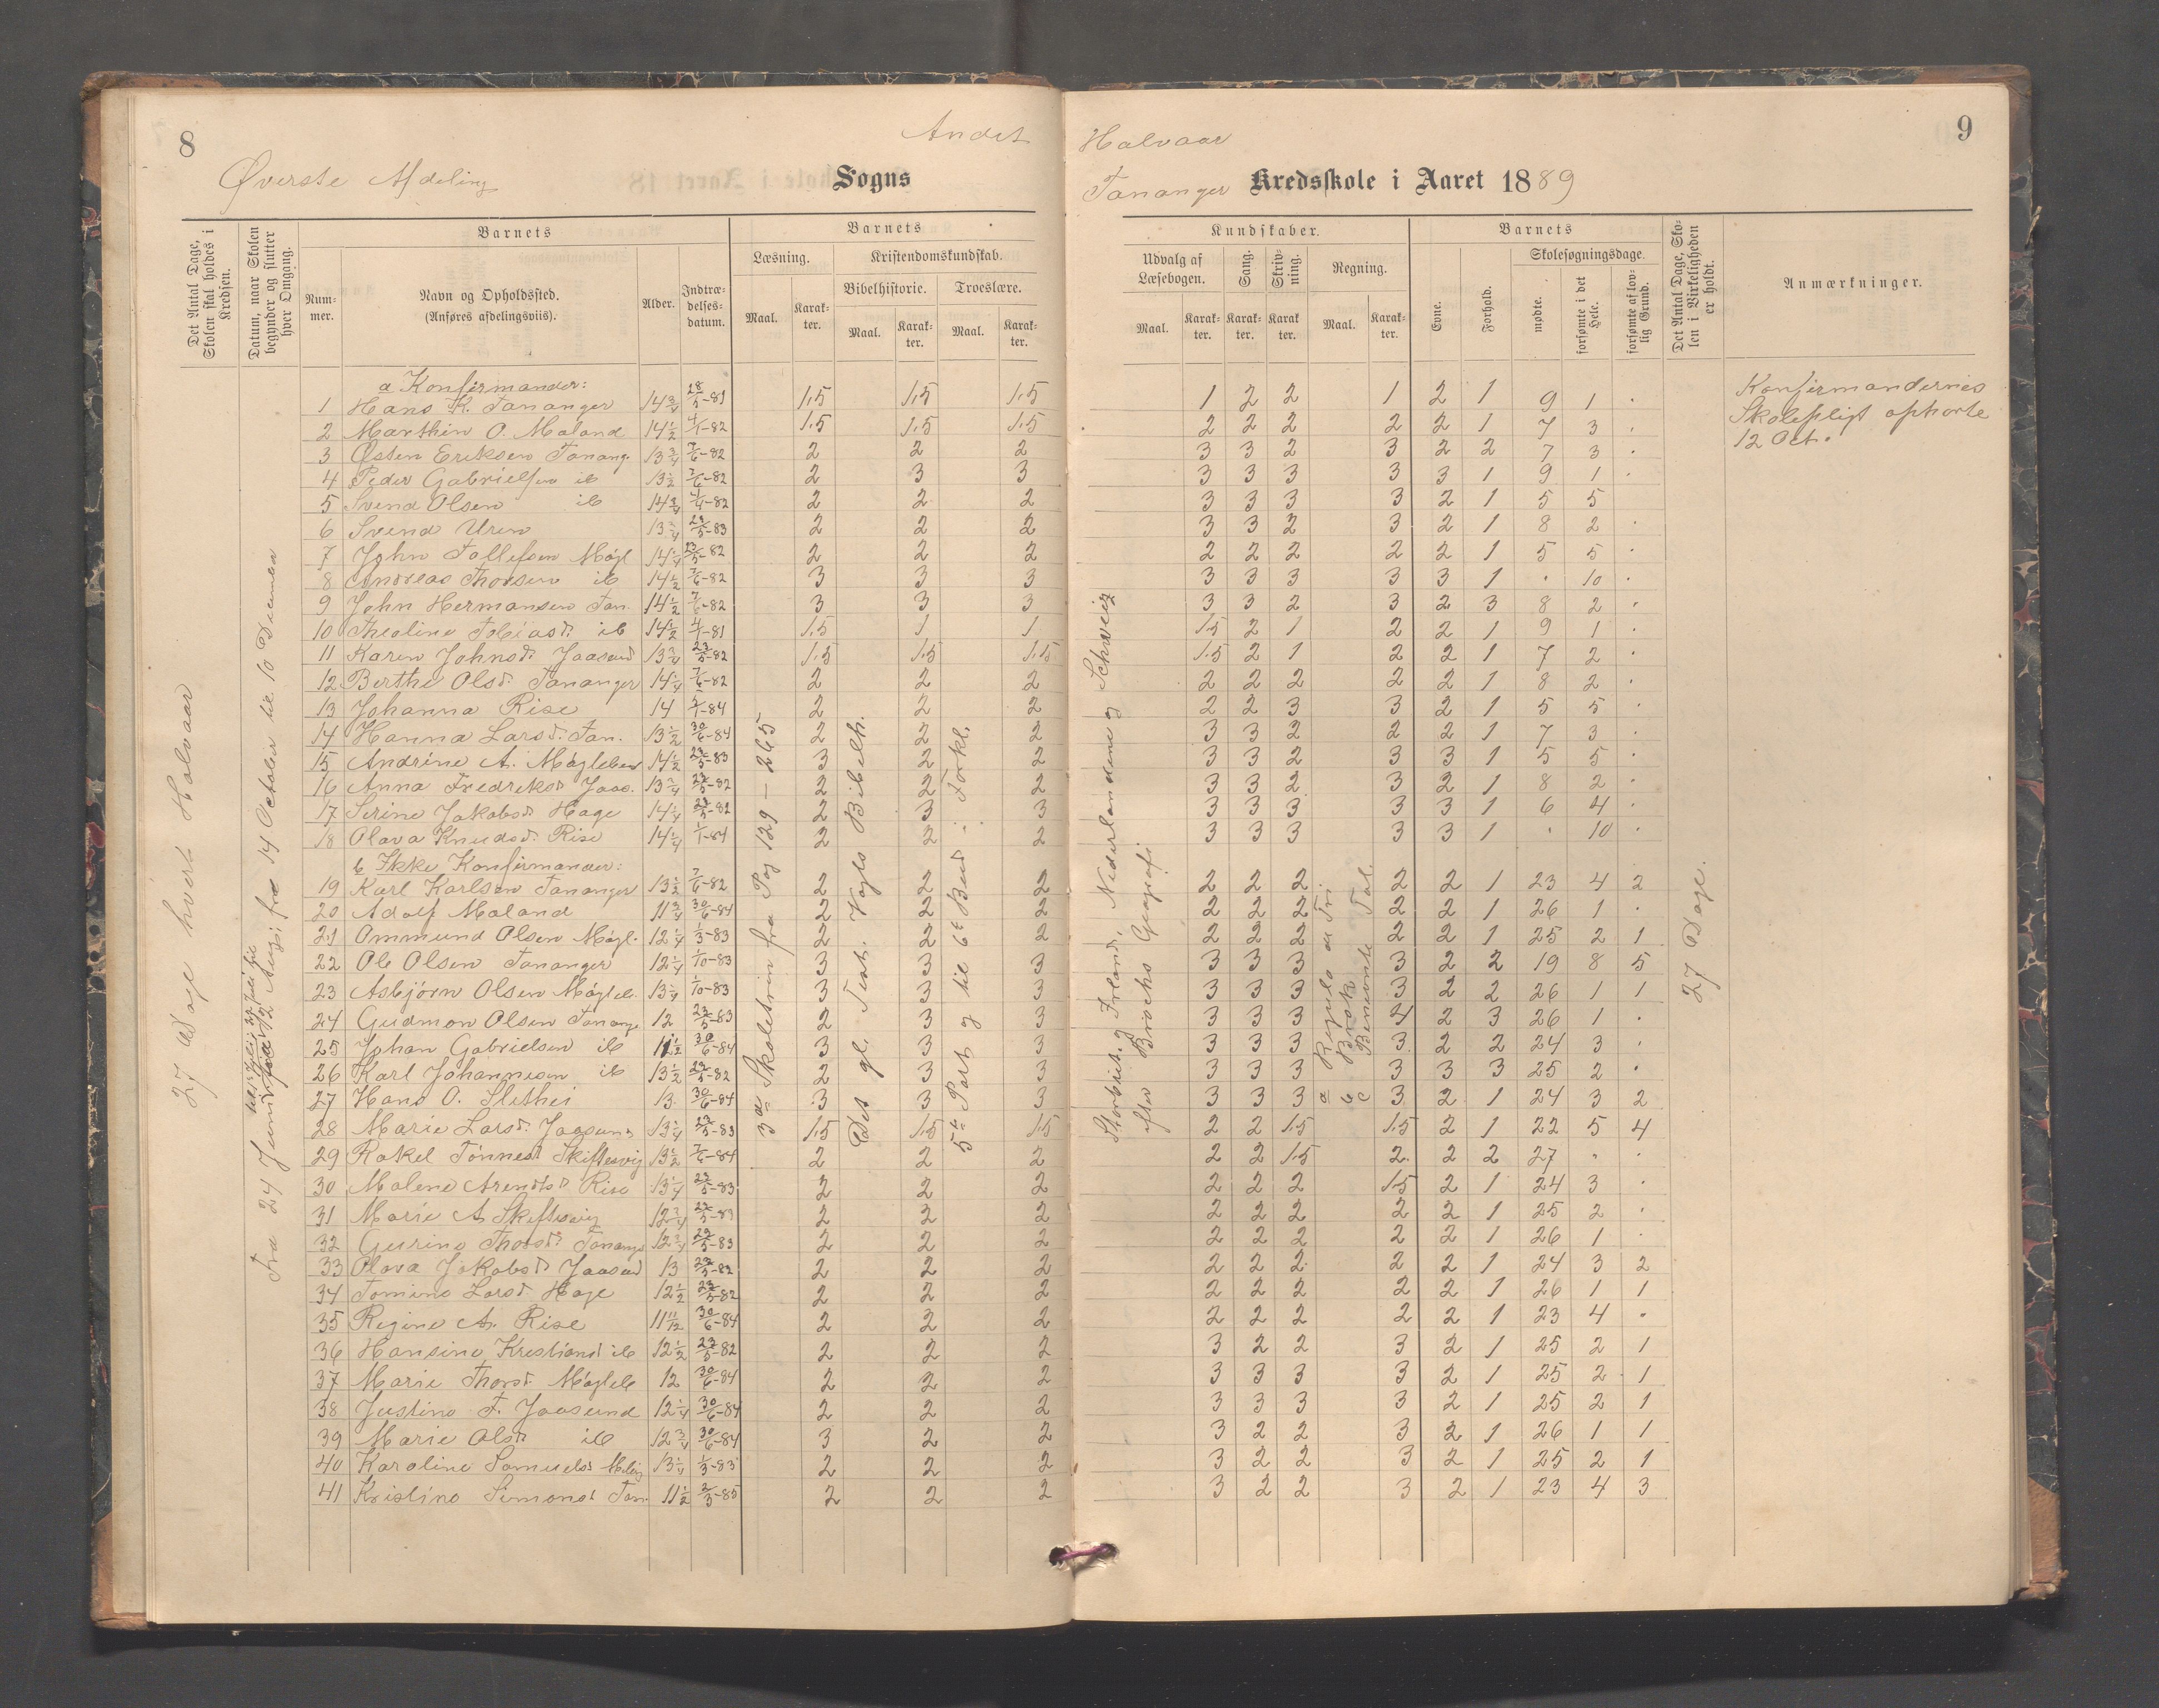 8
Andet
Øverste Afdeling
Sogns
Det Antal Dage, Skolen skal holdes i Kredsen.
Datum, naar Skolen begynder og slutter hver Omgang.
Barnets
Num-mer.
Navn og Opholdssted.
(Anføres afdelingsviis).
Alder.
Indtræ-delses-datum.
Barnets
Læsning.
Kristendomskundskab.
Bibelhistorie.
Troeslære.
Maal.
Karak-ter.
Maal.
Karak-ter.
Maal.
Karak-ter.
27 Dage hvert Halvaar
Fra 24 Juni
fra 14 October til 10 December
3die Skoletrin fra Pag 129 – 265
Det gl. Test. Vogts Bibelh.
5te Part og til 6te Bud i Forkl.
a Konfirmander:
1 Hans K. Tananger 14 3/4 28/5-81 1.5 1.5 1.5
2 Marthin O. Maland 14 1/2 4/1-82 1.5 1.5 1.5
3 Østen Eriksen Tanang. 13 3/4 7/6-82 2 2 2
4 Peder Gabrielsen ib 13 1/2 7/6-82 2 3 3
5 Svend Olsen ib 14 3/4 4/1-82 2 2 2
6 Svend Uren 13 3/4 23/5-83 2 2 2
7 John Tollefsen Møgl 14 1/4 23/5-82 2 2 2
8 Andreas Thorsen ib 14 1/2 7/6-82 3 3 3
9 John Hermansen Tan. 14 1/2 7/6-82 3 3 3
10 Thealine Tobiasd. ib 14 1/2 4/1-81 1.5 1 1
11 Karen Johnsd. Jaasund 13 3/4 23/5-82 1.5 1.5 1.5
12 Berthe Olsd. Tananger 14 1/4 7/6-82 2 2 2
13 Johanna Risa 14 2/1-84 2 2 2
14 Hanna Larsd. Tan. 13 1/2 30/6-84 2 2 2
15 Andrine A. Mågleben 14 1/2 23/5-83 3 2 2
16 Anna Fredriksd. Jaas. 13 3/4 23/5-82 2 2 2
17 Serine Jakobsd. Hage 14 1/4 23/5-82 2 3 3
18 Olava Knudsd. Risa 14 1/4 1/1-84 2 2 2
b Ikke Konfirmander:
19 Karl Karlsen Tananger 13 1/2 7/6-82 2 2 2
20 Adolf Maland 11 3/4 30/6-84 2 2 2
21 Ommund Olsen Mågl. 12 1/4 1/3-83 2 2 2
22 Ole Olsen Tananger 12 1/4 1/10-83 3 3 3
23 Asbjørn Olsen Mågleb. 13 1/4 1/10-83 3 3 3
24 Gudmon Olsen Tanange 12 23/5-83 2 3 3
25 Johan Gabrielsen ib 11 1/2 30/6-84 3 3 3
26 Karl Johannesen ib 13 1/2 23/5-82 2 3 3
27 Hans O. Slethei 13 30/6-84 3 3 3
28 Marie Larsd. Jaasund 13 1/4 23/5-83 1.5 1.5 1.5
29 Rakel Tønnesd. Skiftesvig 13 1/2 7/6-84 2 2 2
30 Malene Arentsd. Risa 13 1/4 23/5-83 2 2 2
31 Marie A Skiftesvig 12 3/4 23/5-83 2 2 2
32 Gurine Thorsd. Tanange 12 3/4 23/5-83 2 2 2
33 Olava Jakobsd. Jaasund 13 23/5-82 2 2 2
34 Tomine Larsd. Hage 12 1/2 23/5-82 2 2 2
35 Regine A. Risa 11 11/12 30/6-84 2 2 2
36 Hansine Kristiansd ib 12 1/2 23/5-82 2 2 2
37 Marie Thorsd. Mågleb 12 30/6-84 2 2 2
38 Justine T. Jaasund 12 1/4 30/6-84 2 2 2
39 Marie Olsd. ib 12 3/4 30/6-84 3 2 2
40 Karoline Samuelsd. Meling 13 1/4 1/3-83 2 2 2
41 Kristine Simonsd. Tan. 11 1/2 2/3-85 2 2 2
9
Halvaar
Tananger Kredsskole i Aaret 1889
Kundskaber.
Barnets
Udvalg af Læsebogen.
Sang.
Skriv-ning.
Regning.
Skolesøgningsdage.
Maal.
Karak-ter.
Karak-ter.
Karak-ter.
Maal.
Karak-ter.
Evne.
Forhold.
mødte.
forsømte i det Hele.
forsømte af lov-lig Grund.
Det Antal Dage, Sko-len i Virkeligheden er holdt.
Anmærkninger.
Storbrit. og Irland, Nederlandene og Schweiz
efter Brochs Geografi
a Regula de Tri
b Brøk
c Benævnte Tal.
27 Dage.
Konfirmandernes
Skolepligt ophørte
12 Oct.
1 2 2 1 2 1 9 1 .
2 2 2 2 2 1 7 3 .
3 3 2 3 2 2 7 3 .
3 3 3 3 3 1 9 1 .
3 3 3 3 2 1 5 5
3 3 2 3 2 1 8 2 .
2 2 2 2 2 1 5 5 .
3 3 3 3 3 1 . 10 .
3 3 2 3 2 3 8 2 .
1.5 2 1 2 2 1 9 1 .
1.5 2 1 2 2 1 7 2 .
2 2 2 2 2 1 8 2 .
2 2 3 3 2 1 5 5 .
3 3 2 2 2 1 7 3 .
3 3 2 3 3 1 5 5 .
3 3 2 3 2 1 8 2 .
3 3 3 3 3 1 6 4 .
3 3 3 3 3 1 . 10 .
2 2 2 2 2 1 23 4 2
2 2 2 2 2 1 26 1 .
2 2 2 2 2 1 25 2 1
3 3 3 3 2 2 19 8 5
3 3 3 3 2 2 26 1 1
3 3 3 4 2 3 26 1 .
3 3 3 3 2 2 24 3 .
3 3 3 3 3 3 25 2 .
3 3 3 3 2 1 24 3 2
2 2 1.5 1.5 2 1 22 5 4
2 2 1.5 2 2 2 27 . .
2 2 2 1.5 2 1 24 3 .
2 2 2 2 2 1 25 2 .
2 2 2 2 2 1 26 1 .
2 2 2 2 2 1 24 3 2
2 2 2 2 2 1 26 1 1
2 2 2 2 2 1 23 4 .
3 2 2 3 2 1 25 2 1
3 3 3 3 2 1 25 2 1
3 3 3 3 2 1 25 2 1
3 2 2 3 2 1 26 1 1
3 2 2 3 2 1 25 2 1
3 2 2 3 2 1 23 4 3